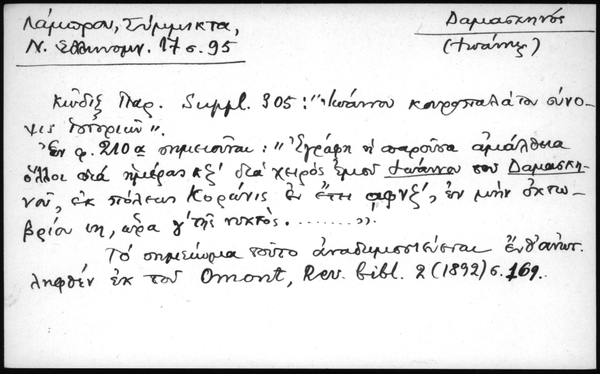 Λάμπρου, Σύμμικτα,
Ν. Ἑλληνομν. 17 σ. 95
Δαμασκηνός
(Ἰωάννης)
Κῶδιξ Παρ. Suppl. 305: "Ἰωάννου κουροπαλάτου σύνο-
ψις ἱστοριῶν".
Ἐν φ. 210α σημειοῦται: "Ἐγράφη ἡ παροῦσα ἀμάλθεια
διά ἡμέρας κξ' διά χειρός ἐμοῦ Ἰωάννου του Δαμασκη-
νοῦ, ἐκ πόλεως Κορώνις ἐν ἔτει αφνξ', ἐν μήν ὀκτω-
βρίου ιη, ὥρα γ' τῆς νυκτός. ........".
Τό σημείωμα τοῦτο ἀναδημοσιεύεται ἔνθ' ἀνωτ.
ληφθέν ἐκ τοῦ Omont, Rev. bibl. 2 (1892) σ. 169.